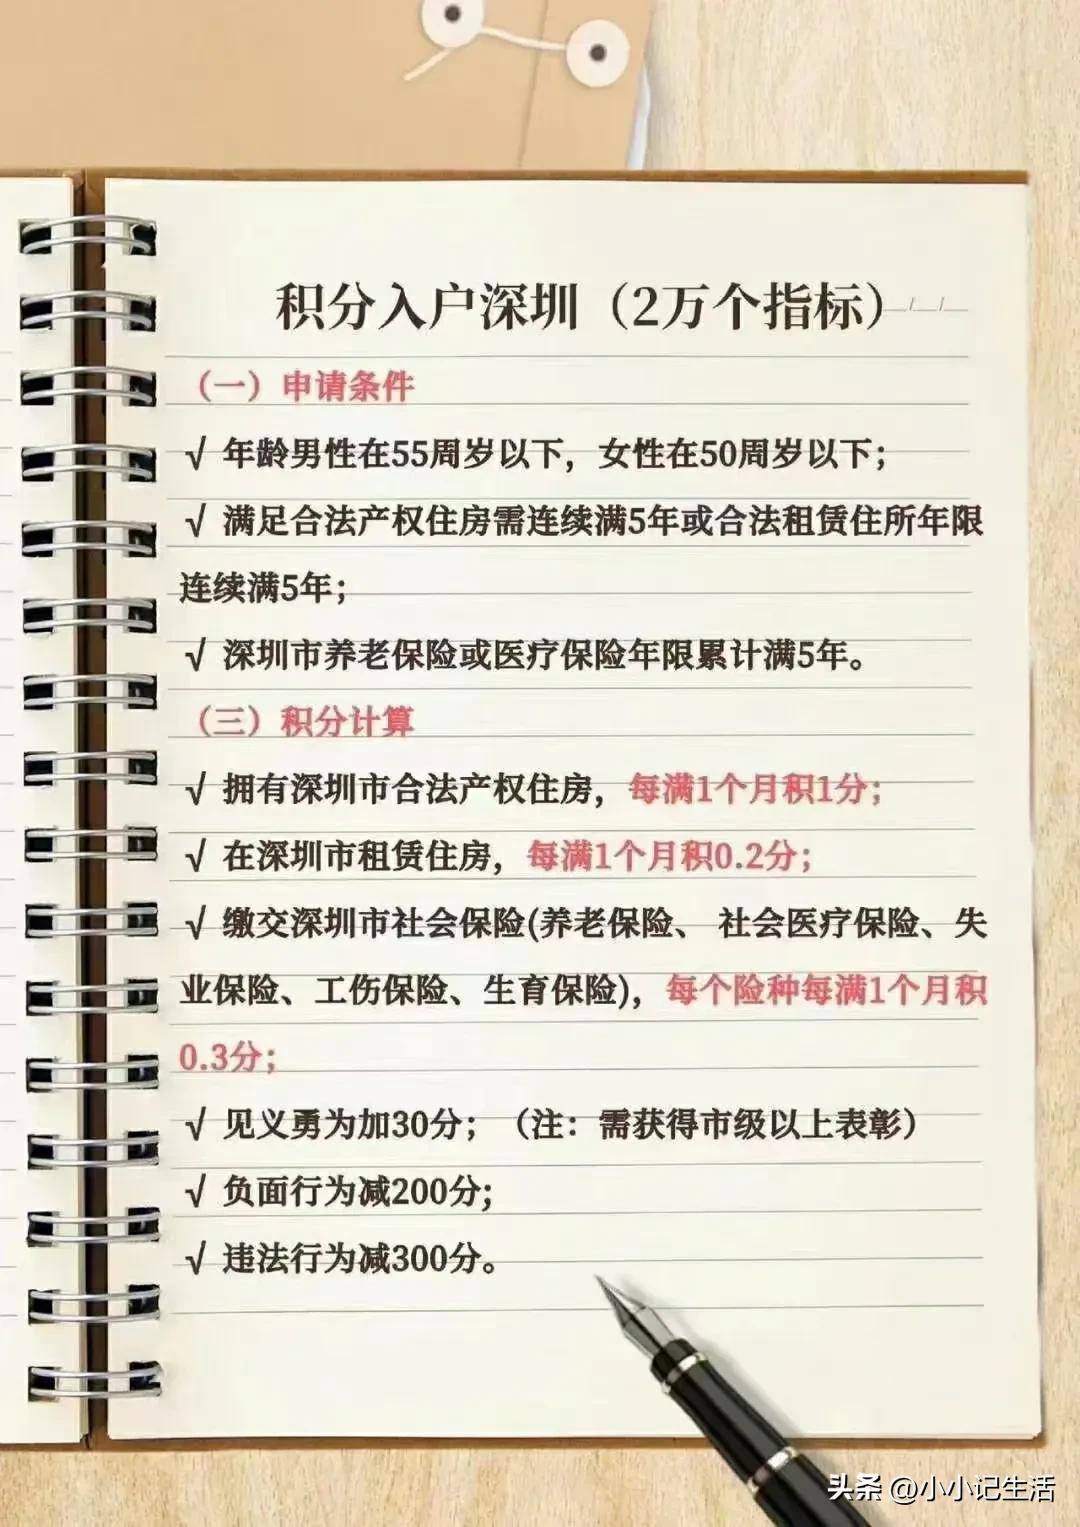 积分入户深圳（2万个指标）
（一）申请条件
√ 年龄男性在55周岁以下，女性在50周岁以下；
√ 满足合法产权住房需连续满5年或合法租赁住所年限
连续满5年；
√ 深圳市养老保险或医疗保险年限累计满5年。
（三）积分计算
√ 拥有深圳市合法产权住房，每满1个月积1分；
√ 在深圳市租赁住房，每满1个月积0.2分；
√ 缴交深圳市社会保险(养老保险、 社会医疗保险、失
业保险、工伤保险、生育保险)，每个险种每满1个月积
0.3分；
√ 见义勇为加30分；（注：需获得市级以上表彰）
√ 负面行为减200分;
√ 违法行为减300分。
头条 @小小记生活